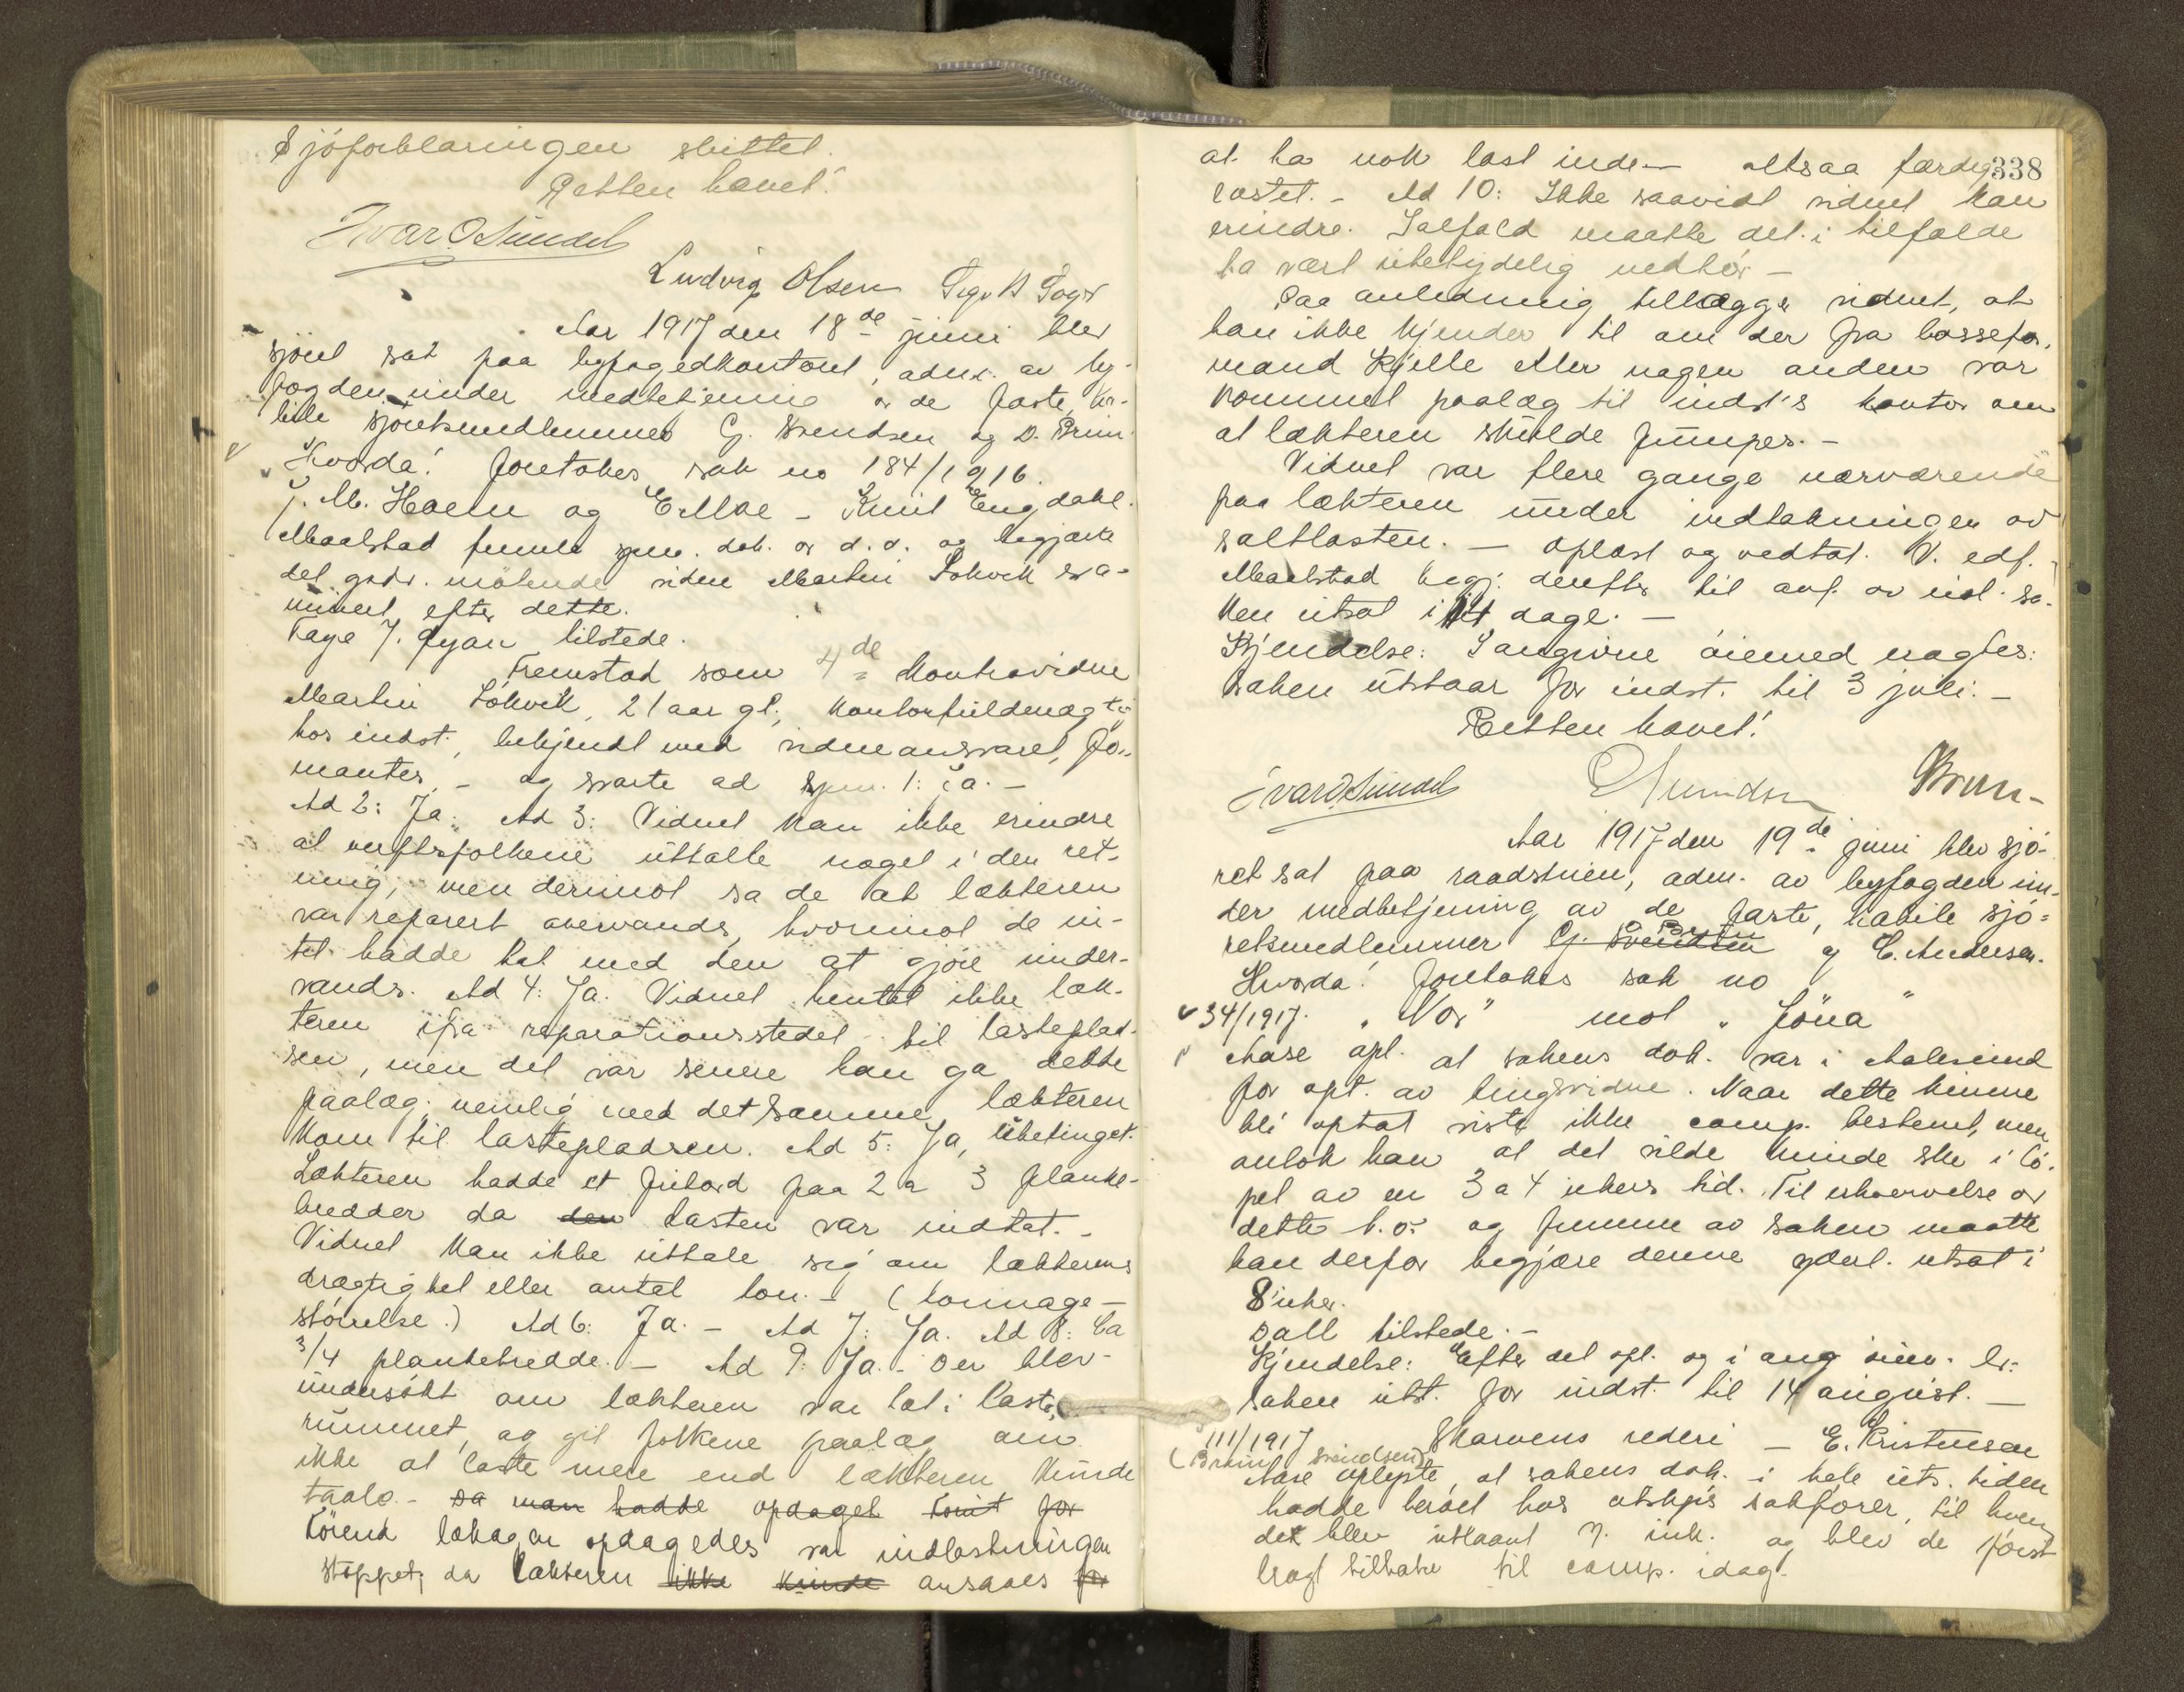 Sjöforklaringen sluttet.
Retten hævet!
Ivar O Sundel
Ludvig Olsen
Aar 1917 den 18de juni blev
sjöret sat paa byfogedkontoret, adm. av by-
fogden under medbetjening av de faste, ha-
bile sjöretsmedlemmer G. Svendsen og D. Brun.
Hvorda! foretokes sak no 184/1916.
J. M. Hoem og E. Moe - Knut Engdahl.
Maalstad fremla spm. dat. os d. d. og begjærte
det godv. mötende vidne Martin Lökvik exa-
minert efter dette.
Fage J. Ryan tilstede.
Fremstod som 4de kontravidne
Martin Lökvik, 21 aar gl., kontorfuldmægtig
hos indst., bekjendt med vidneansvaret, for-
mantes, - og svarte ad spm. 1: Ja. -
Ad 2: Ja. Ad 3: Vidnet kan ikke erindre
at verftsfolkene uttalte noget i den ret-
ning, men derimot sa de at lækteren
var reparert overvands, hvorimot de in-
tet hadde hat med den at gjöre under-
vands. Ad 4: Ja. Vidnet hentet ikke læk-
teren ifra reparationsstedet til lasteplad-
sen, men det var senere han ga dette
paalæg, nemlig med det samme lækteren
kom til lastepladsen. Ad 5: Ja, ubetinget.
Lækteren hadde et fribord paa 2 a 3 planke-
bredder da den lasten var indtat. -
Vidnet kan ikke uttale sig om lækterens
drægtighet eller antal ton. - (tonnage-
störrelse.) Ad 6: Ja. - Ad 7: Ja. Ad 8: Ca
3/4 plankebredde. - Ad 9: Ja. - Der blev
undersökt om lækteren var tæt i laste-
rummet, og git folkene paalæg om
ikke at laste mere end lækteren kunde
taale. - Da man hadde opdaget for
lækagen opdagedes var indlastningen
stoppet, da lækteren ikke kunde ansaaes for
338
at ha nok last inde - altsaa færdig-
lastet. - Ad 10: Ikke saavidt vidnet kan
erindre. Ialfald maatte det i tilfælde
ha vært ubetydelig nedbör -
Paa anledning tillægger vidnet, at
han ikke kjender til om der fra bassefor-
mand Kjelle eller nogen anden var
kommet paalæg til indst's kontor om
at lækteren skulde pumpes. -
Vidnet var flere gange nærværende
paa lækteren under indtakningen av
saltlasten. - Oplæst og vedtat. V. edf. -
Maalstad begj. derefter til avf. av mot. sa-
ken utsat i 14 dage. -
Kjendelse: I angivne öiemed nægtes:
Saken utstaar for indst. til 3 juli. -
Retten hævet!
Ivar O Sundel G Svendsen D Brun -
Aar 1917 den 19de juni blev sjö-
ret sat paa raadstuen, adm. av byfogden un-
der medbetjening av de faste, habile sjö-
retsmedlemmer G. Svendsen D Brun og C. Andersen.
Hvorda! foretokes sak no
34/1917. "Vor" mot "Jöna"
Aase opl. at sakens dok. var i Aalesund
for opt. av tingsvidne. Naar dette kunne
bli optat viste ikke comp. bestemt, men
antok han at det vilde kunde ske i lö-
pet av en 3 a 4 ukers tid. Til erhvervelse av
dette t.v. og fremme av saken maatte
han derfor begjære denne yderl. utsat i
8 uker.
Dall tilstede. -
Kjendelse: Efter det opl. og i ang öiem. er:
Saken utst. for indst. til 14 august. -
111/1917 Skarvens rederi - E. Kristensen
(Brun, Svendsen)
Aase oplyste, at sakens dok. i hele uts. tiden
hadde beroet hos utskp's sakförer, til hvem
det blev utlaant n. ink. og blev de först
bragt tilbake til comp. idag.